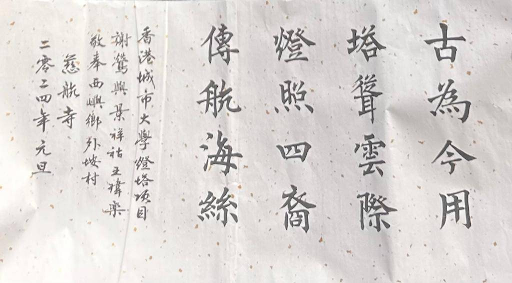 古為今用
塔聳雲際
燈照四裔
傳航海絲
香港城市大學燈塔項目
謝駕與景祥祜王稚樂
敬奉西嶼鄉外垵村
慈航寺
二零二四年元旦